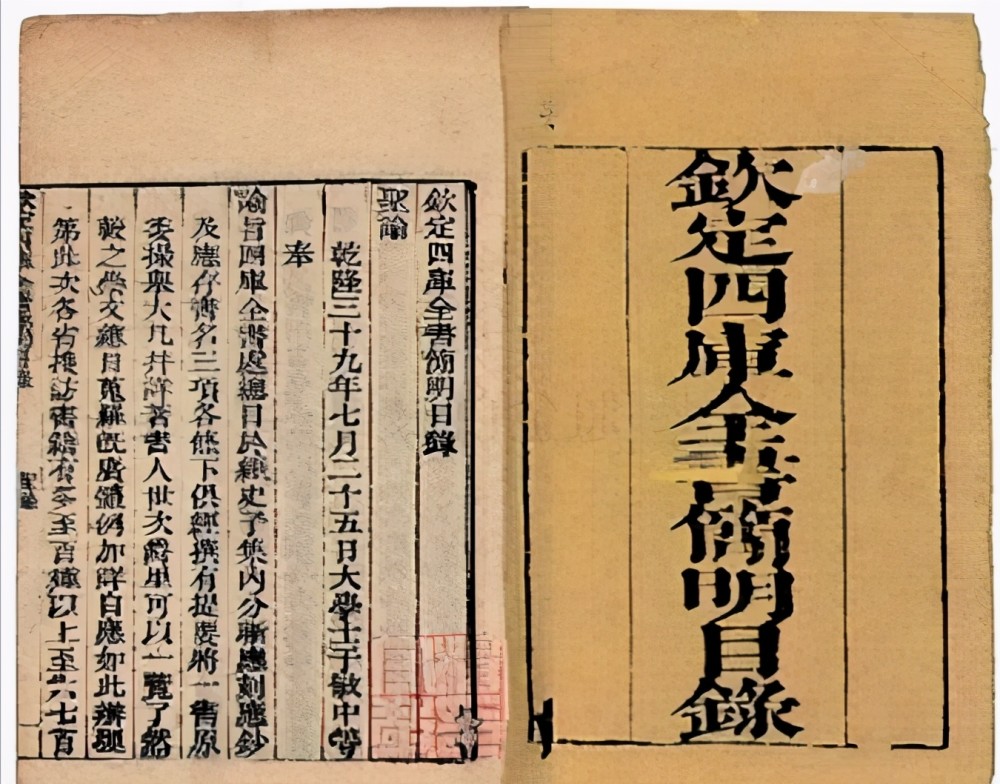 欽定四庫全書簡明目錄
欽定四庫全書簡明目錄
聖諭
乾隆三十九年七月二十五日大學士于敏中等
奉
諭旨四庫全書處總目於經史子集內分晰應刻應鈔
及應存書名三項各條下俱經撰有提要將一書原
委撮舉大凡并詳著書人世次爵里可以一覽了然
較之學文總目蒐羅既廣體例加詳自應如此辦理
第此次各省搜訪書籍有多至百種以上至六七百